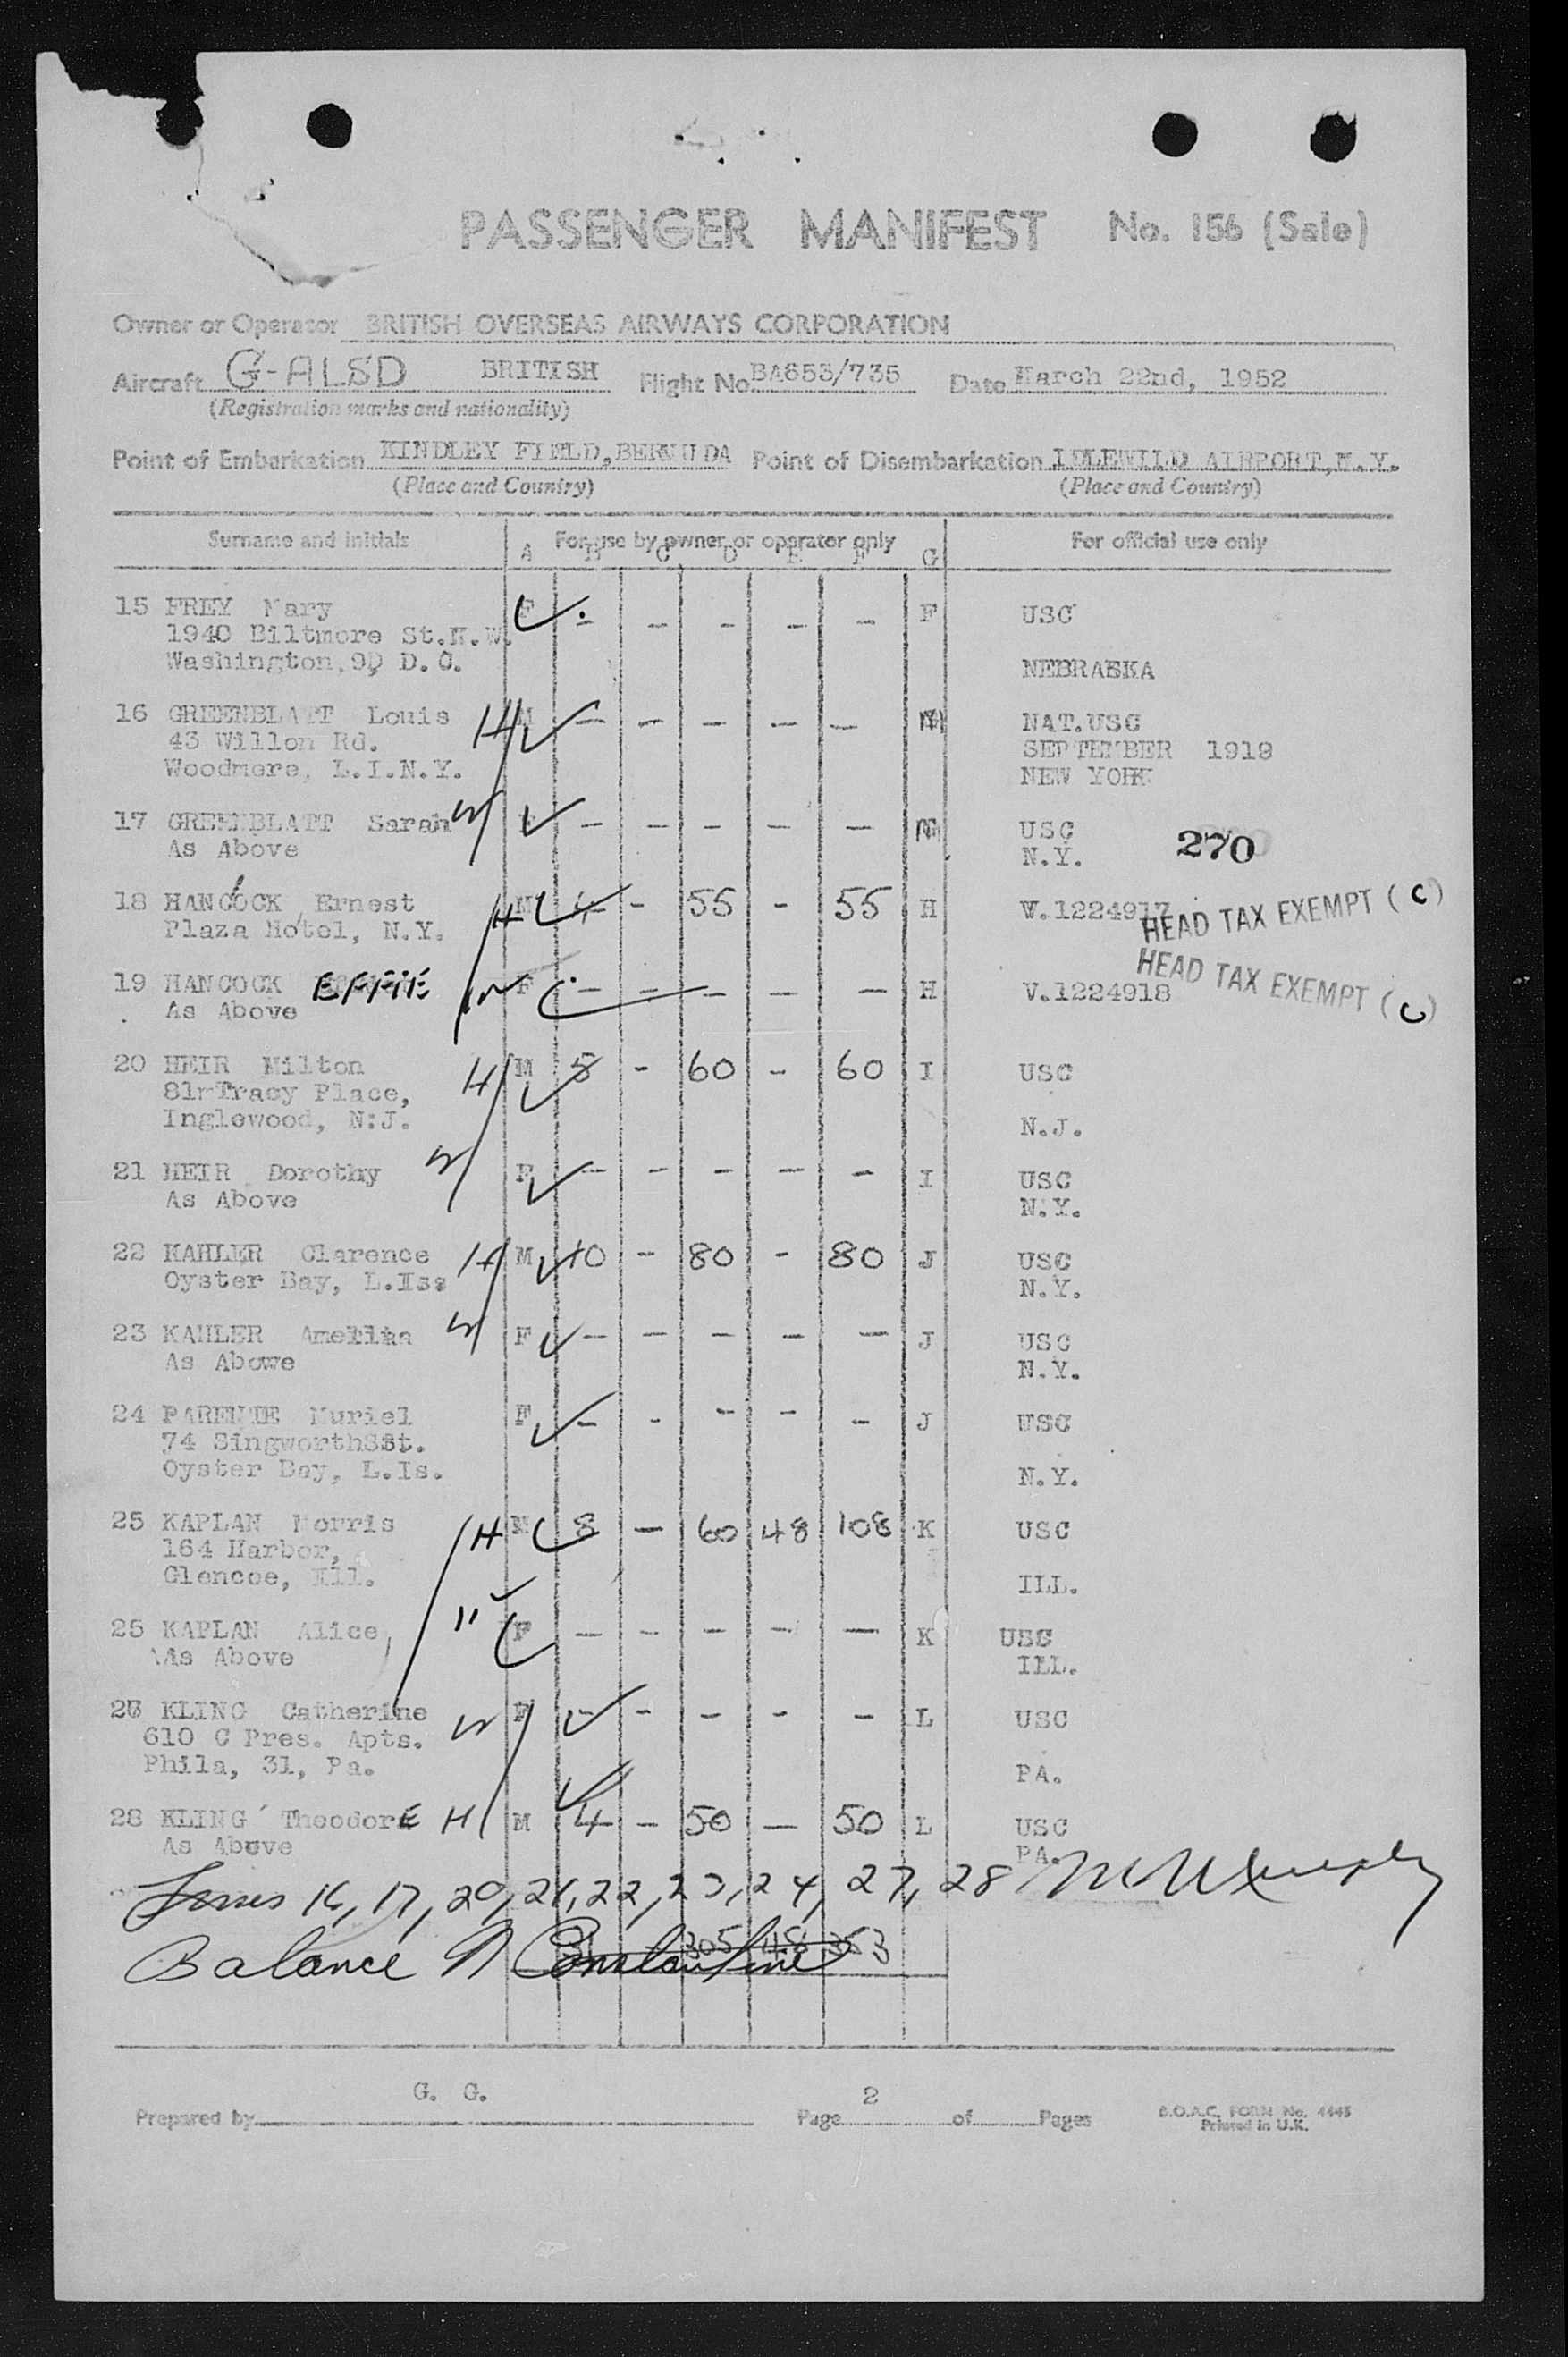 PASSENGER MANIFEST No. 156 (Sale)
Owner or Operator BRITISH OVERSEAS AIRWAYS CORPORATION
Aircraft G-ALSD BRITISH Flight No. BA653/735 Date March 22nd, 1952
(Registration marks and nationality)
Point of Embarkation KINDLEY FIELD, BERMUDA Point of Disembarkation IDLEWILD AIRPORT, N.Y.
(Place and Country) (Place and Country)
Surname and initials For use by owner or operator only For official use only
A B C D E F G
15 FREY Mary F - - - - - F USC
1940 Biltmore St.N.W.
Washington, 9, D.C. NEBRASKA
16 GREENBLATT Louis H M - - - - - NAT.USC
43 Willon Rd. SEPTEMBER 1918
Woodmere, L.I.N.Y. NEW YORK
17 GREENBLATT Sarah W - - - - - USC
As Above N.Y. 270
18 HANCOCK Ernest H M 4 - 55 - 55 H V.1224917
Plaza Hotel, N.Y. HEAD TAX EXEMPT (C)
19 HANCOCK EFFIE W F - - - - - H V.1224918
As Above HEAD TAX EXEMPT (C)
20 HEIR Milton H M 5 - 60 - 60 I USC
81 Tracy Place,
Inglewood, N.J. N.J.
21 HEIR Dorothy W F - - - - - I USC
As Above N.Y.
22 KAHLER Clarence H M 10 - 80 - 80 J USC
Oyster Bay, L.Is. N.Y.
23 KAHLER W F - - - - - J USC
As Above N.Y.
24 PARENTE Muriel F - - - - - J USC
74 SingworthSSt.
Oyster Bay, L.Is. N.Y.
25 KAPLAN Morris H M 8 - 60 48 108 K USC
164 Harbor,
Glencoe, Ill. ILL.
25 KAPLAN Alice W F - - - - - K USC
As Above ILL.
27 KLING Catherine W F - - - - - L USC
610 C Pres. Apts.
Phila, 31, Pa. PA.
28 KLING TheodorE H M 4 - 50 - 50 L USC
As Above PA.
Lines 16, 17, 20, 21, 22, 23, 24, 27, 28
305 48 353
Balance N Constantine
G. G. 2
Prepared by Page of Pages B.O.A.C. FORM No. 4445
Printed in U.K.